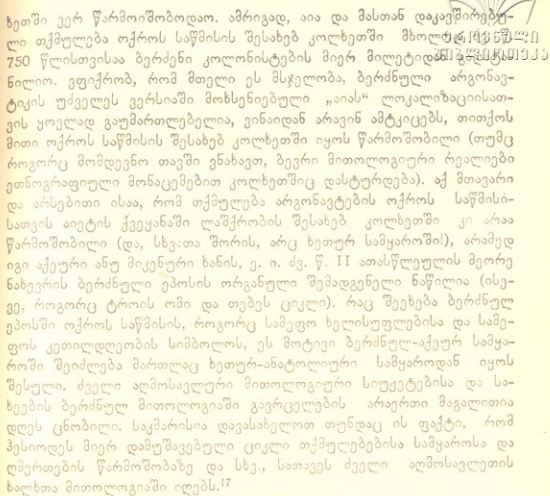 ხეთში ვერ წარმოიშობოდაო. ამრიგად, აია და მასთან დაკავშირებუ-
ლი თქმულება ოქროს საწმისის შესახებ კოლხეთში მხოლოდ
750 წლისთვისაა ბერძენი კოლონისტების მიერ მილეტიდან
ნილიო. ვფიქრობ, რომ მთელი ეს მსჯელობა, ბერძნული არგონავ-
ტიკის უძველეს ვერსიაში მოხსენიებული „აიას“ ლოკალიზაციისათ-
ვის ყოვლად გაუმართლებელია, ვინაიდან არავინ ამტკიცებს, თითქოს
მითი ოქროს საწმისის შესახებ კოლხეთში იყოს წარმოშობილი (თუმც
როგორც მომდევნო თავში ვნახავთ, ბევრი მითოლოგიური რეალიები
ეთნოგრაფიული მონაცემებით კოლხეთშიც დასტურდება). აქ მთავარი
და არსებითი ისაა, რომ თქმულება არგონავტების ოქროს საწმისი-
სათვის აიეტის ქვეყანაში ლაშქრობის შესახებ კოლხეთში კი არაა
წარმოშობილი (და, სხვათა შორის, არც ხეთურ სამყაროში!), არამედ
იგი აქეური ანუ მიკენური ხანის, ე. ი. ძვ. წ. II ათასწლეულის მეორე
ნახევრის ბერძნული ეპოსის ორგანული შემადგენელი ნაწილია (ისე-
ვე, როგორც ტროის ომი და თებეს ციკლი). რაც შეეხება ბერძნულ
ეპოსში ოქროს საწმისის, როგორც სამეფო ხელისუფლებისა და სამე-
ფოს კეთილდღეობის სიმბოლოს, ეს მოტივი ბერძნულ-აქეურ სამყა-
როში შეიძლება მართლაც ხეთურ-ანატოლიური სამყაროდან იყოს
შესული. ძველი აღმოსავლური მითოლოგიური სიუჟეტებისა და სა-
ხეების ბერძნულ მითოლოგიაში გავრცელების არაერთი მაგალითია
დღეს ცნობილი. საკმარისია დავასახელოთ თუნდაც ის ფაქტი, რომ
ჰესიოდეს მიერ დამუშავებული ციკლი თქმულებებისა სამყაროსა და
ღმერთების წარმოშობაზე და სხვ., სათავეს ძველი აღმოსავლეთის
ხალხთა მითოლოგიაში იღებს.¹⁷